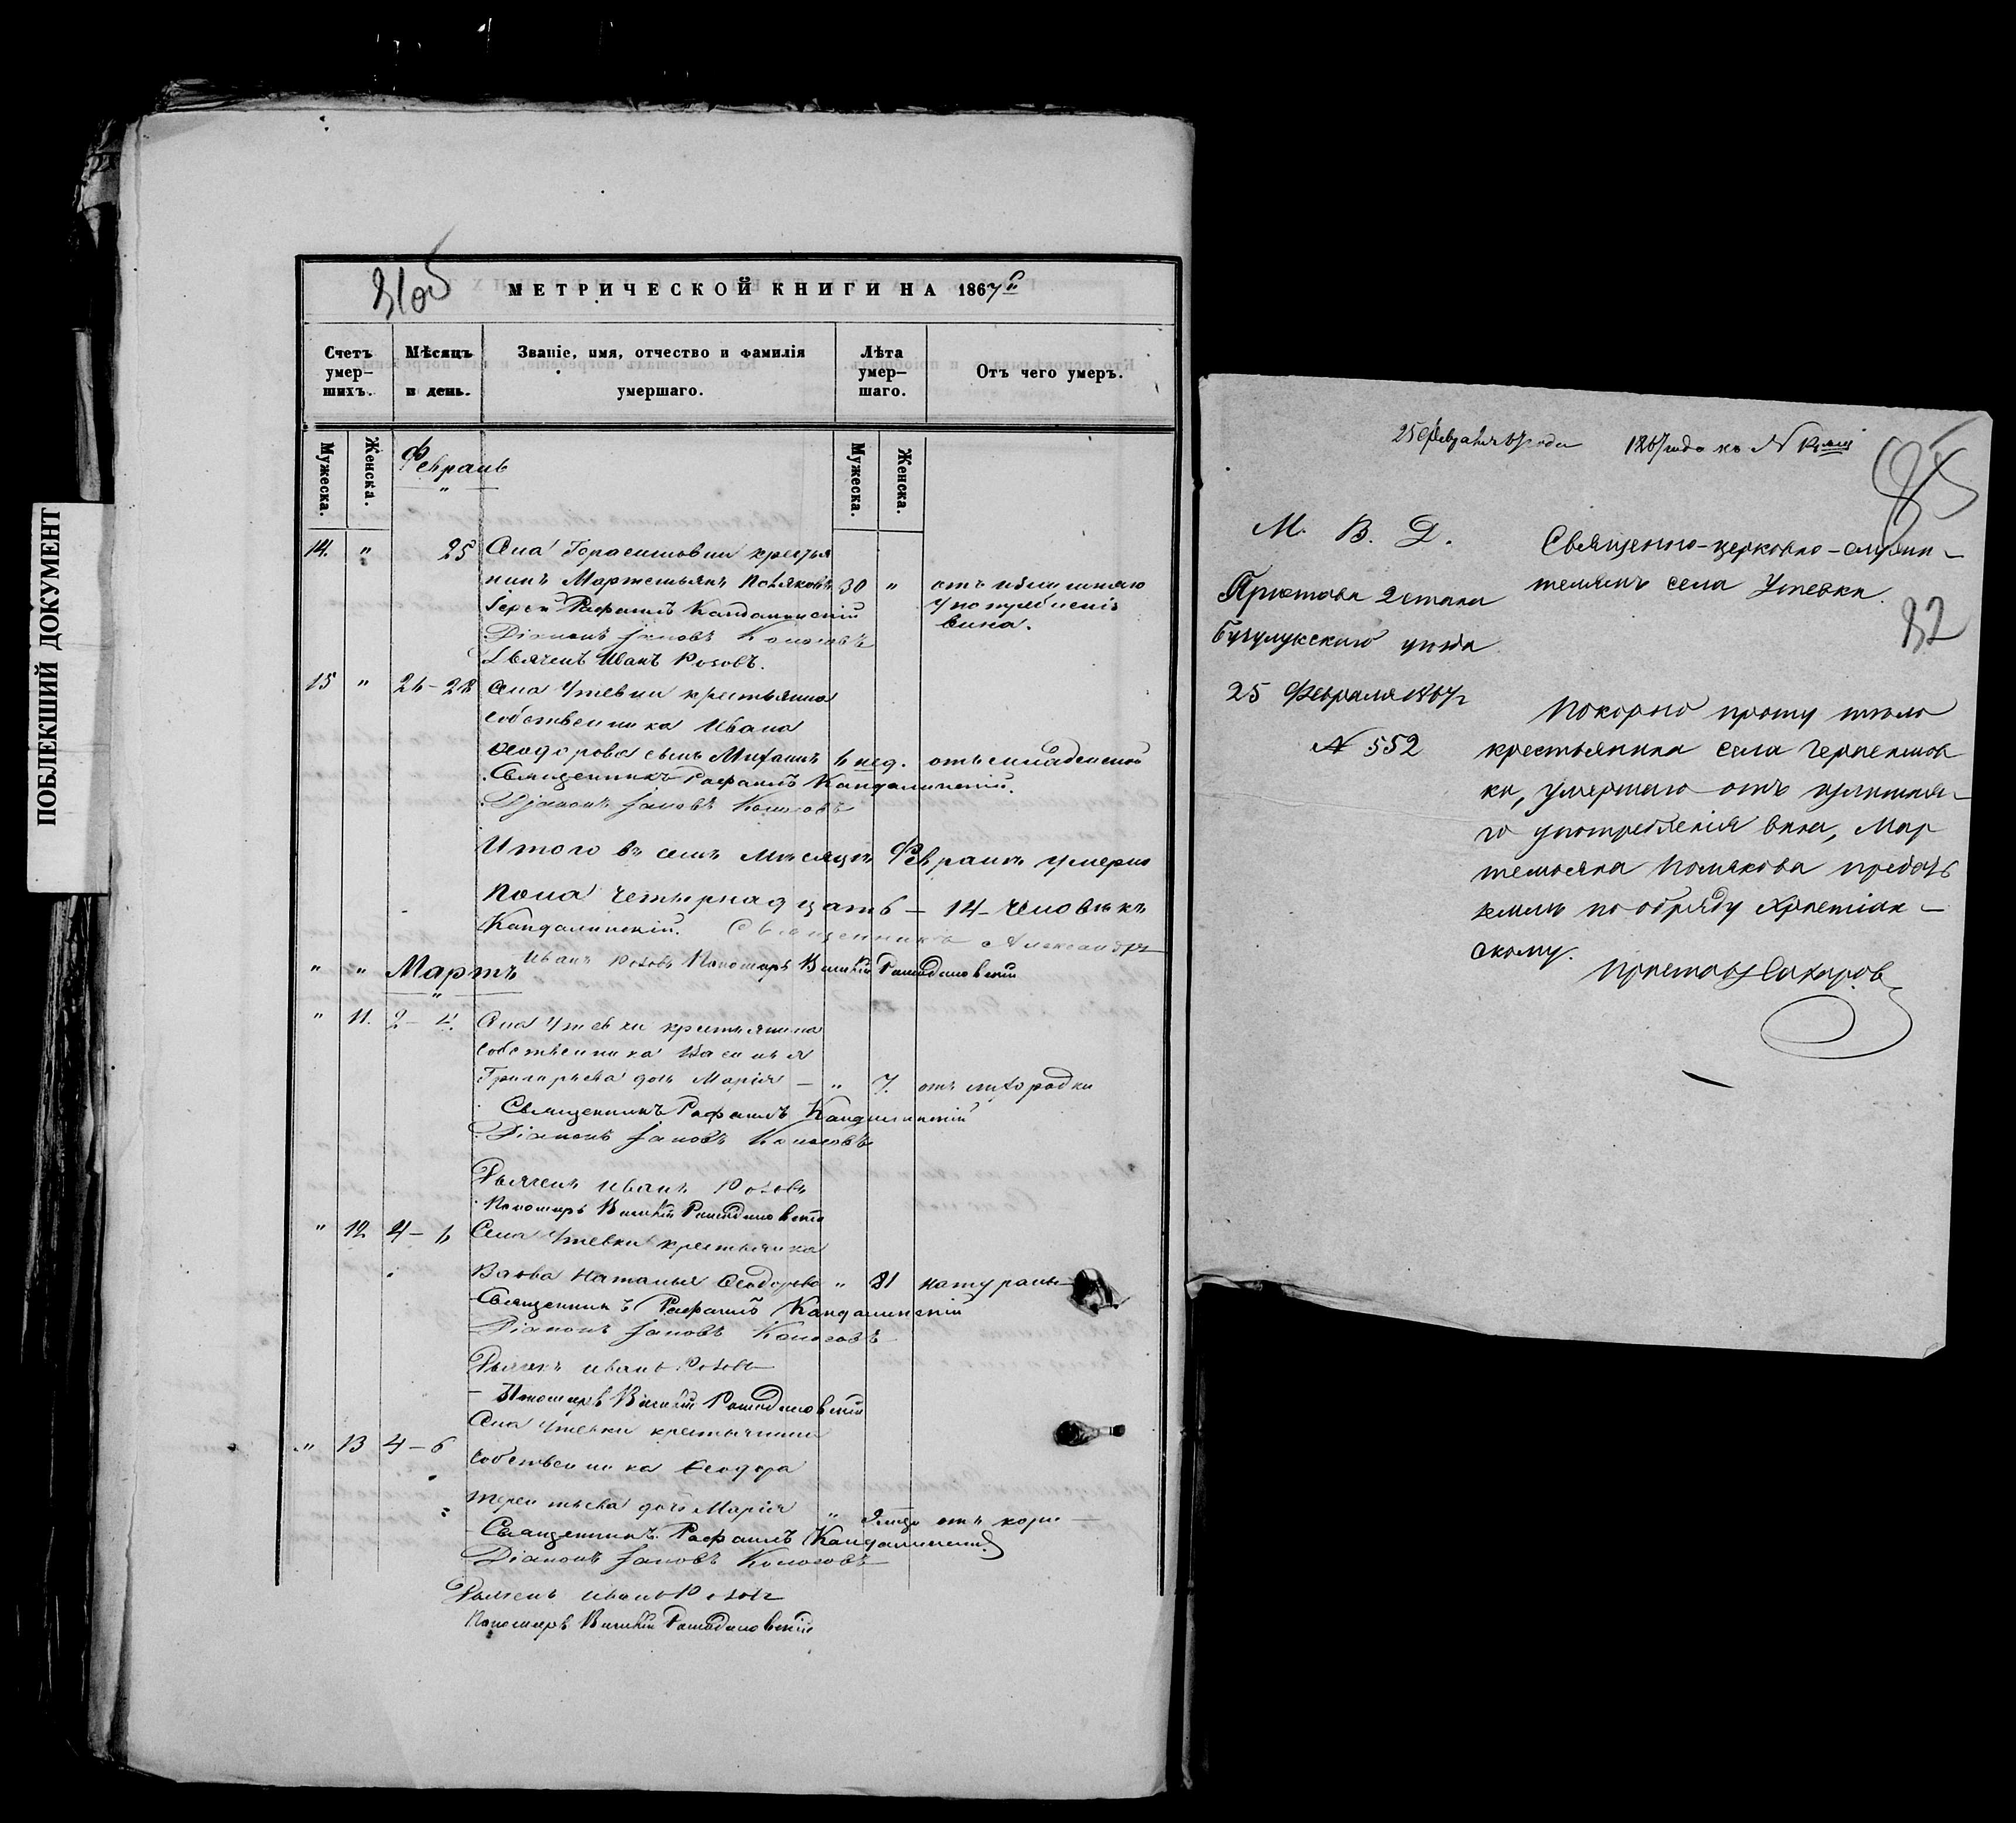 ПОБЛЕКШИЙ ДОКУМЕНТ
31об
МЕТРИЧЕСКОЙ КНИГИ НА 1867й
Счетъ умер-шихъ.
Мѣсяцъ и день.
Званіе, имя, отчество и фамилія умершаго.
Лѣта умер-шаго.
Отъ чего умеръ.
Мужеска.
Женска.
Мужеска.
Женска.
Февраль
14. " 25 Села Герасимовки крестья
нинъ Мартемьянъ Поляковъ 30 " отъ излишняго
Іерей Рафаилъ Кандалинскій употребленія
Діаконъ Іаковъ Колосовъ вина.
Дьячекъ Иванъ Розовъ.
15 " 26-28 Села Утевки крестьянина
собственника Ивана
Ѳеодорова сынъ Михаилъ 6 нед. отъ младенской
Священникъ Рафаилъ Кандалинскій.
Діаконъ Іаковъ Колосовъ
Итого въ семъ мѣсяцѣ Февралѣ умерло
пола четырнадцать - 14 - человѣкъ
Кандалинскій. Священникъ Александръ
Иванъ Розовъ Пономарь
" " Мартъ
" 11. 2-4. Села Утевки крестьянина
собственника Василья
Григорьева дочь Марія - " 7. отъ лихорадки
Священникъ Рафаилъ Кандалинскій
Діаконъ Іаковъ Колосовъ
Дьячекъ Иванъ Розовъ
Пономарь
" 12 4-6 Села Утевки крестьянка
вдова Наталья Ѳеодорова " 81 натураль
Священникъ Рафаилъ Кандалинскій
Діаконъ Іаковъ Колосовъ
Дьячекъ Иванъ Розовъ
Пономарь
Села Утевки крестьянина
" 13 4-6
собственника Ѳеодора
Терентьева дочь Марія " отъ кори
Священникъ Рафаилъ Кандалинскій
Діаконъ Іаковъ Колосовъ
Дьячекъ Иванъ Розовъ
Пономарь
25 Февраля 1867 года къ №
М. В. Д.
Пристава 2 стана
Бугулукскаго уѣзда
25 Февраля 1867 г
№ 552
Священно-церковно-служи-
телямъ села Утевки.
32
Покорно прошу тѣло
крестьянина села Герасимов
ки, умершаго отъ излишня-
го употребленія вина, Мар
темьяна Полякова предать
землѣ по обряду Христіан-
скому.
Приставъ Сахаров